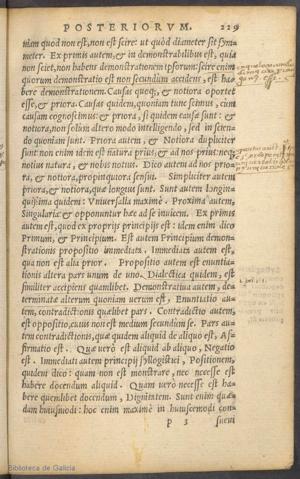 POSTERIORVM. 229
niam quod non est, non est scire: ut quòd diameter sit sym
meter. Ex primis autem, & in demonstrabilibus est, quia
non sciet, non habens demonstrationem ipsorum: scire enim
quorum demonstratio est non secundùm accidens, est ha
bere demonstrationem. Causas quoq;, & notiora oportet
esse, & priora. Causas quidem, quoniam tunc scimus, cùm
causam cognoscimus: & priora, si quidem causæ sunt: &
notiora, non solùm altero modo intelligendo, sed in scien
do quoniam sunt. Priora autem, & Notiora dupliciter
sunt non enim idem est natura prius, & ad nos prius: neq;
notius natura, & nobis notius. Dico autem ad nos prio
ra, & notiora, propinquiora sensui. Simpliciter autem
priora, & notiora, quæ longius sunt. Sunt autem longin
quissima quidem: Vniuersalia maximè. Proxima autem,
Singularia: & opponuntur hæc ad se inuicem. Ex primis
autem est, quod ex proprijs principijs est: idem enim dico
Primum, & Principium. Est autem Principium demon-
strationis propositio immediata. Immediata autem est,
qua non est alia prior. Propositio autem est enuntia
tionis altera pars unum de uno. Dialectica quidem, est
similiter accipiens quamlibet. Demonstratiua autem, de=
terminatè alterum quoniam uerum est, Enuntiatio au
tem, contradictionis quælibet pars. Contradictio autem,
est oppositio, cuius non est medium secundùm se. Pars au
tem contradictionis, quæ quidem aliquid de aliquo est, Af-
firmatio est. Quæ uerò est aliquid ab aliquo, Negatio
est. Immediati autem principij syllogistici, Positionem,
quidem dico: quam non est monstrare, nec necesse est
habere docendum aliquid. Quam uerò necesse est ha-
bere quemlibet docendum, Dignitatem. Sunt enim quæ=
dam huiusmodi: hoc enim maximè in huiuscemodi con-
P 3 sueui
Biblioteca de Galicia